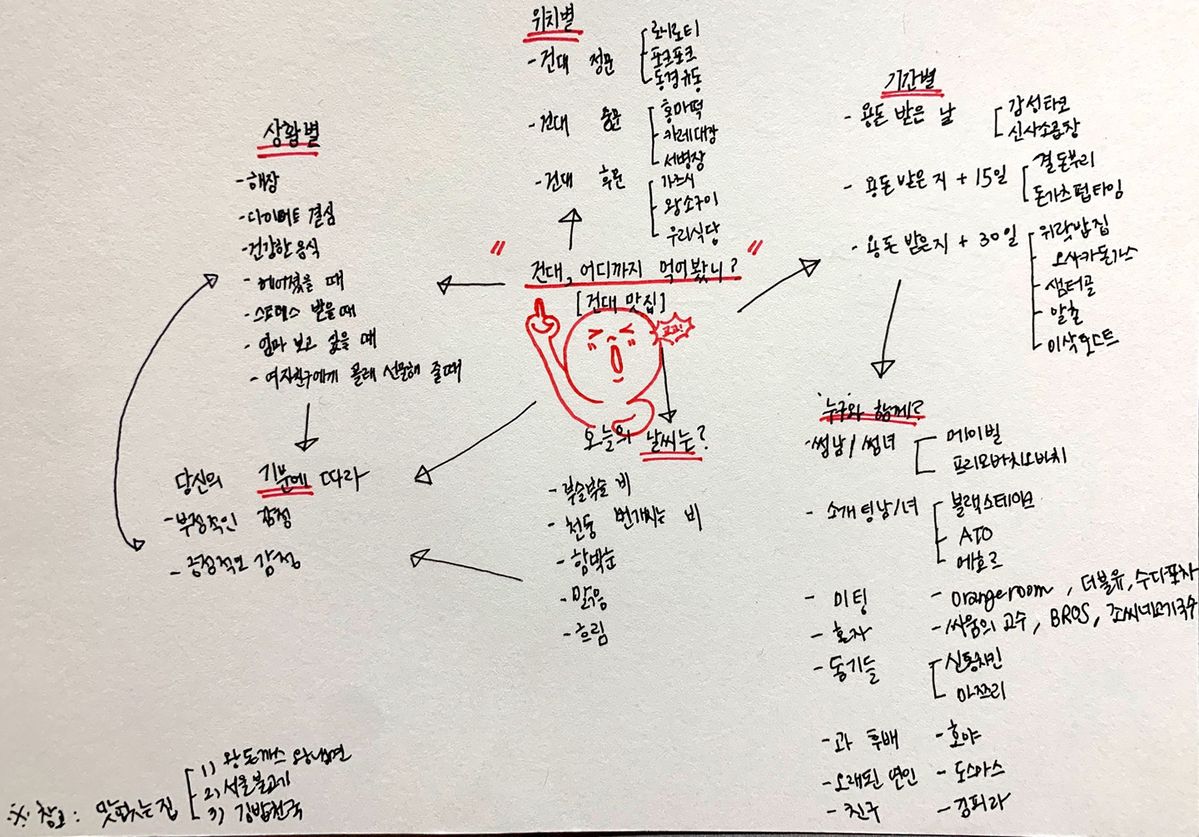 위치별
- 건대 정문
로니로티
포크포크
동경우동
- 건대 중문
홍마떡
카레대장
서병장
- 건대 후문
가츠시
왕소구이
우리식당
"건대, 어디까지 먹어봤니?"
[건대 맛집]
꼬끼!
상황별
- 해장
- 다이어트 결심
- 건강한 음식
- 헤어졌을 때
- 스트레스 받을 때
- 엄마 보고 싶을 때
- 여자친구에게 몰래 선물해 줄 때
당신의 기분에 따라
- 부정적인 감정
- 긍정적인 감정
오늘의 날씨는?
- 부슬부슬 비
- 천둥 번개치는 비
- 함박눈
- 맑음
- 흐림
기간별
- 용돈 받은 날
감성타코
신사소곱창
- 용돈 받은 지 + 15일
결돈부리
돈가츠펍타임
- 용돈 받은지 + 30일
위락밥집
오사카돈가스
샘터골
알촌
이삭토스트
'누구와 함께?'
- 썸남/썸녀
메이빌
프리모바치오바치
- 소개팅남/녀
블랙스테이크
AIO
에호르
- 미팅 - orangeroom, 더블유, 수다포차
- 혼자 - 싸움의 고수, BROS, 조씨네고기국수
- 동기들
신통치킨
아쯔리
- 과 후배 - 호야
- 오래된 연인 - 도스마스
- 친구 - 김피라
※ 참고: 맛없는 집
1) 왕돈까스 왕냉면
2) 서울불고기
3) 김밥천국